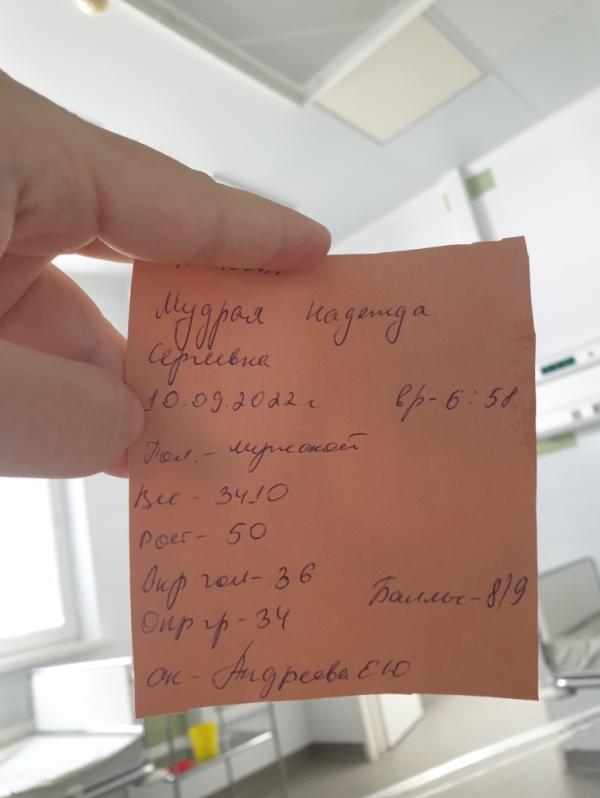 Мудрая Надежда
Сергеевна
10.09.2022 г вр- 6:58
Пол. - мужской
Вес - 3410
Рост - 50
Окр гол - 36
Баллы - 8/9
Окр гр - 34
ак - Андреева ЕЮ